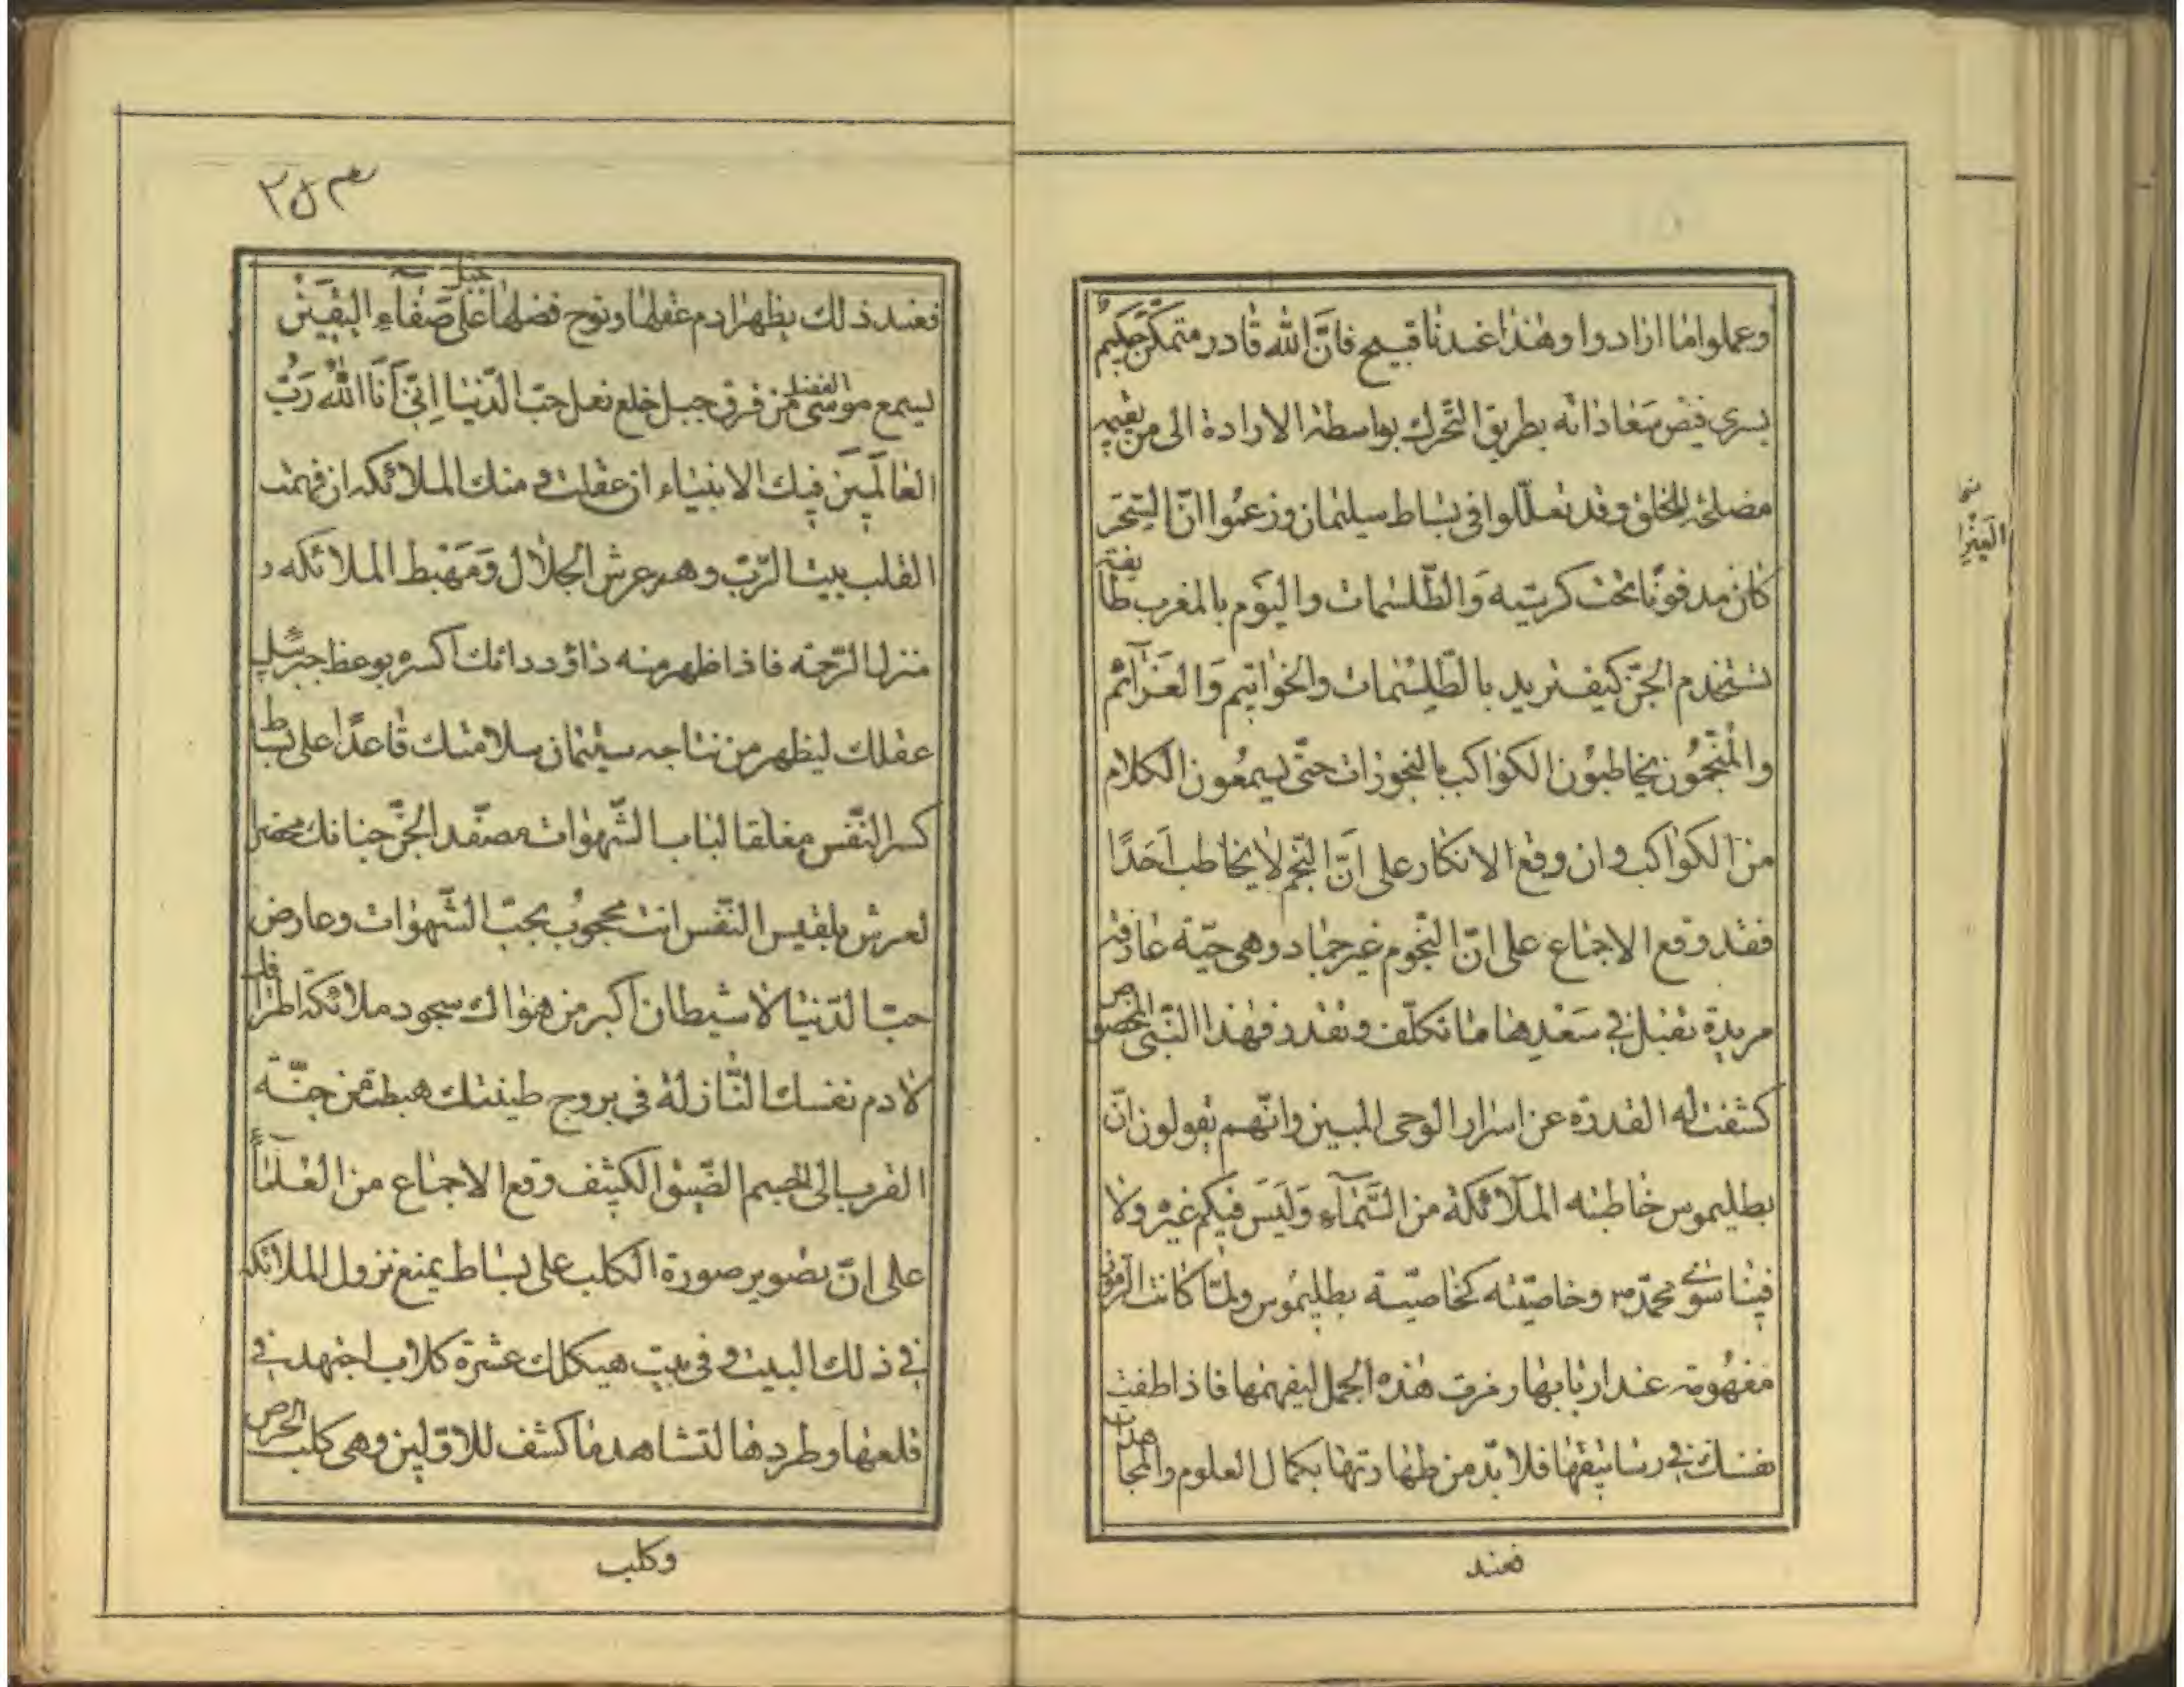 وعملوا ما ارادوا وهذا عندنا قبيح فانّ الله قادر متمكّن حكيم
يسرى فيض سعاداته بطريق التّحرك بواسطة الارادة الى من يقيمه
مصلحة للخلق وقد تعلّلوا فى بساط سليمان وزعموا انّ السّحر
كان مدفونًا تحت كرسيه وَالطّلسمات واليوم بالمغرب طايفة
تستخدم الجنّ كيف تريد بالطّلِسْمات والخواتيم وَالعَزآئم
والمُنجّمُون يخاطبون الكواكب بالبخورات حتّى يسمعون الكلام
من الكواكب وان وقع الانكار على انّ النّجم لا يخاطب اَحَدًا
فقد وقع الاجماع على انّ النّجوم غير جماد وهى حيّة عارفة
مريدة تقبل فى سَعْدِها ما تكلّف وتقدر فهذا النّبى المخصوص
كشفت له القدرة عن اسرار الوحى المبين وانّهم يقولون انّ
بطليموس خاطبته الملآئكة من السَّمآءِ وَلَيَسَ فيكم غيره ولا
فينا سوى محمّد ص وخاصّيته كخاصّية بطليموس ولمّا كانت الرموز
مفهُومة عند اربابها رمزت هذه الجمل ليفهمها فاذا طفت
نفسك فى رساتيقها فلا بدّ من طهارتها بكمال العلوم والمجاهدات
فعند
٢٥٣
فعند ذلك يظهر ادم عقلها ونوح فضلها على جبل صفآءِ اليقين
ليسمع موسى الفضل من فرق جبل خلع نعل حبّ الدّنيا اِنّى اَنَا اللهُ رَبُّ
العَالَمينَ فيك الانبياء ان عقلت و منك الملائكه ان فهمت
القلب بيت الرّبّ وهو عرش الجلال وَمَهْبط الملائكه و
منزل الرّحمة فاذا ظهر منه داؤد دائك اكسره بوعظ جبرئيل
عقلك ليظهر من نتاجه سليمان سلامتك قاعدًا على بساط
كسر النّفس مغلقا لباب الشّهوات مصفّد الجنّ محضرا
لعرش بلقيس النّفس انت محجوبٌ بحبّ الشّهوات وعارض
حبّ الدّنيا لا شيطان اكبر من هواك سجود ملائكة
لادم نفسك النّازلة فى بروج طينتك هبطت من جنّة
القرب الى الجسم الضّيق الكثيف وقع الاجماع من العلمآء
على انّ تصوير صورة الكلب على بساط يمنع نزول الملائكه
فى ذلك البيت و فى بيت هيكلك عشرة كلاب اجتهد فى
قلعها وطردها لتشاهد ما كشف للاوّلين وهى كلب الحرص
وكلب